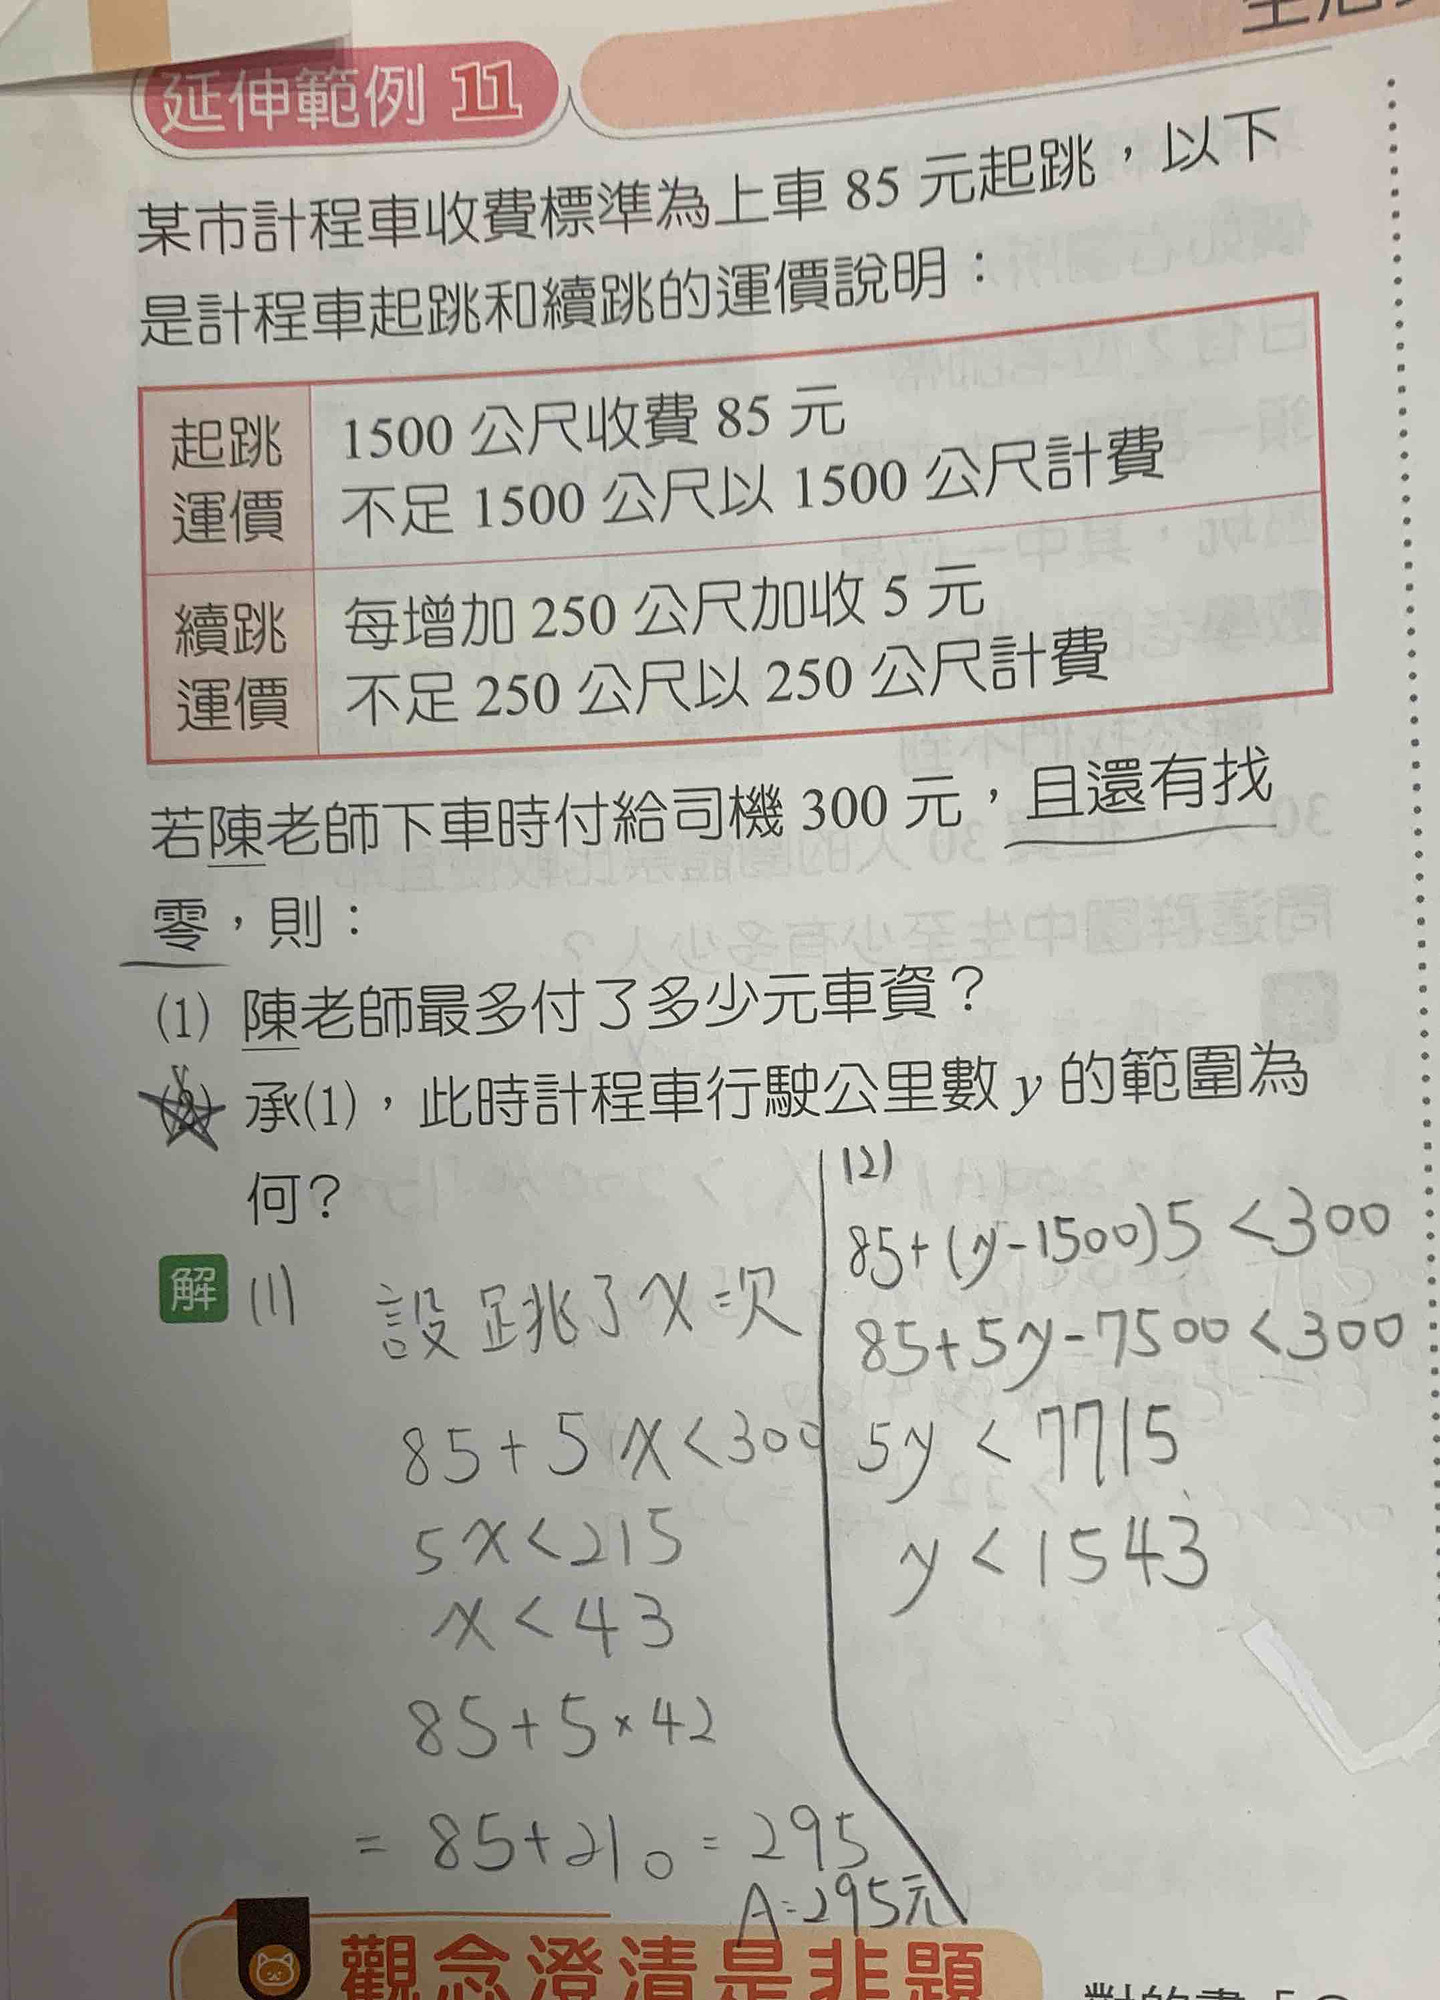 延伸範例 11
某市計程車收費標準為上車 85 元起跳，以下
是計程車起跳和續跳的運價說明：
起跳
運價
1500 公尺收費 85 元
不足 1500 公尺以 1500 公尺計費
續跳
運價
每增加 250 公尺加收 5 元
不足 250 公尺以 250 公尺計費
若陳老師下車時付給司機 300 元，且還有找
零，則：
(1) 陳老師最多付了多少元車資？
(2) 承(1)，此時計程車行駛公里數 y 的範圍為
何？
解 (1)
設跳了x次
85+5x<300
5x<215
x<43
85+5×42
=85+210=295
A=295元
(2)
85+(y-1500)5<300
85+5y-7500<300
5y<7715
y<1543
觀念澄清是非題